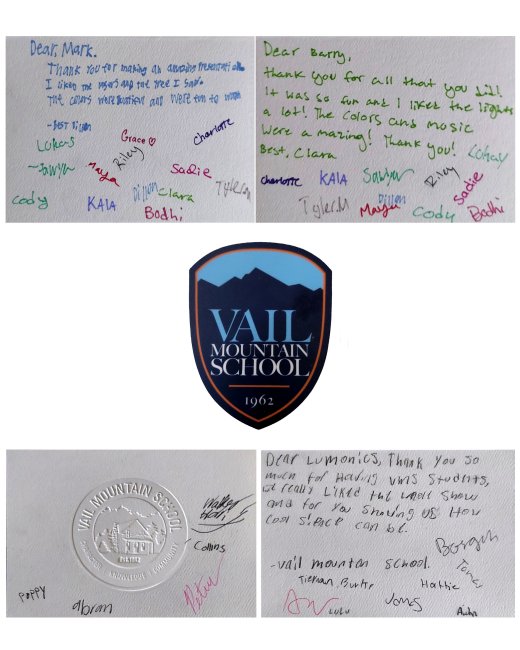 Dear, Mark.
Thank you for making an amazing presentation.
I liked the and the tree I saw.
The colors were beautiful and were fun to watch
-Best Dillon
Lukas
Grace
Charlotte
~Sawyer
Maya
Riley
Sadie
Cody
KAIA
Dillon
Clara
Bodhi
Tyler.m
Dear Barry,
thank you for all that you did!
It was so fun and I liked the lights
a lot! The colors and music
were amazing! Thank you!
Best, Clara
Lukas
Charlotte
KAIA
Sawyer
Riley
Sadie
Tyler.M
Maya
Dillon
Cody
Bodhi
VAIL
MOUNTAIN
SCHOOL
1962
VAIL MOUNTAIN SCHOOL
CHARACTER KNOWLEDGE COMMUNITY
Est. 1962
Walker
Collins
poppy
abram
Peter
Dear Lumonics, Thank you so
much for Having vms students,
I really Liked the Show
and for you Showing us How
cool can be.
-vail mounton school.
Tiernan, Burke
Hattie
LuLu
James